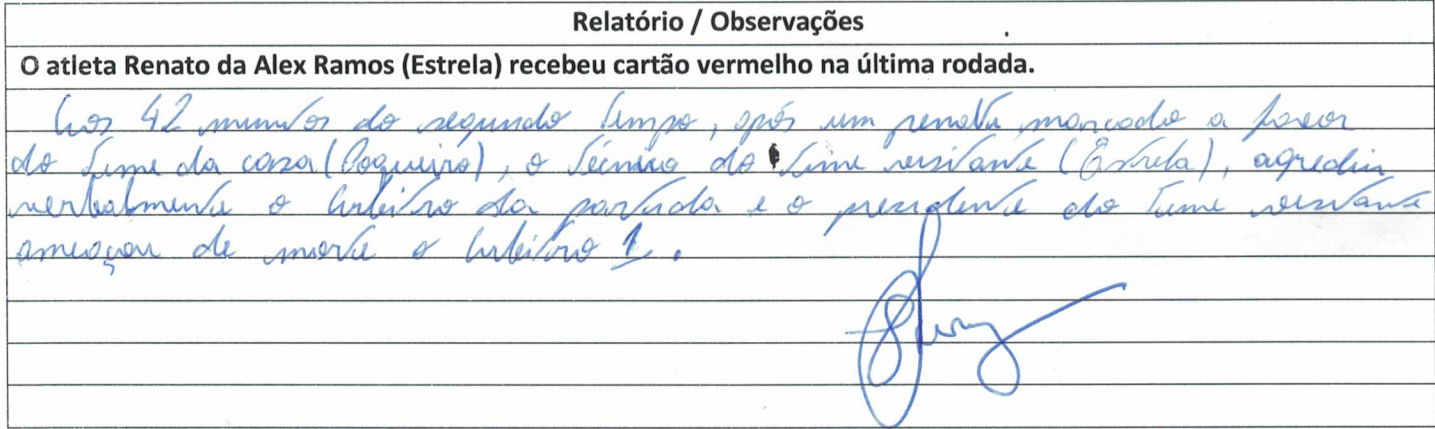 Relatório / Observações
O atleta Renato da Alex Ramos (Estrela) recebeu cartão vermelho na última rodada.
Aos 42 minutos do segundo tempo, após um penalti marcado a favor
do time da casa (Coqueiro), o técnico do time visitante (Estrela), agrediu
verbalmente o árbitro da partida e o presidente do time visitante
ameaçou de morte o árbitro 1.